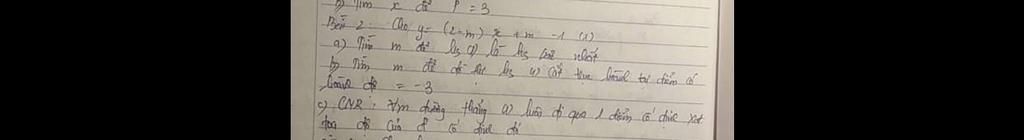 b) Tìm x để P = 3
Bài 2: Cho y = (2-m) x + m - 1 (1)
a) Tìm m để hs (1) là hs bậc nhất
b) Tìm m để đồ thị hs (1) cắt trục hoành tại điểm có
hoành độ = -3
c) CMR: ∀m đường thẳng (1) luôn đi qua 1 điểm cố định
tọa độ của đ cố định đó